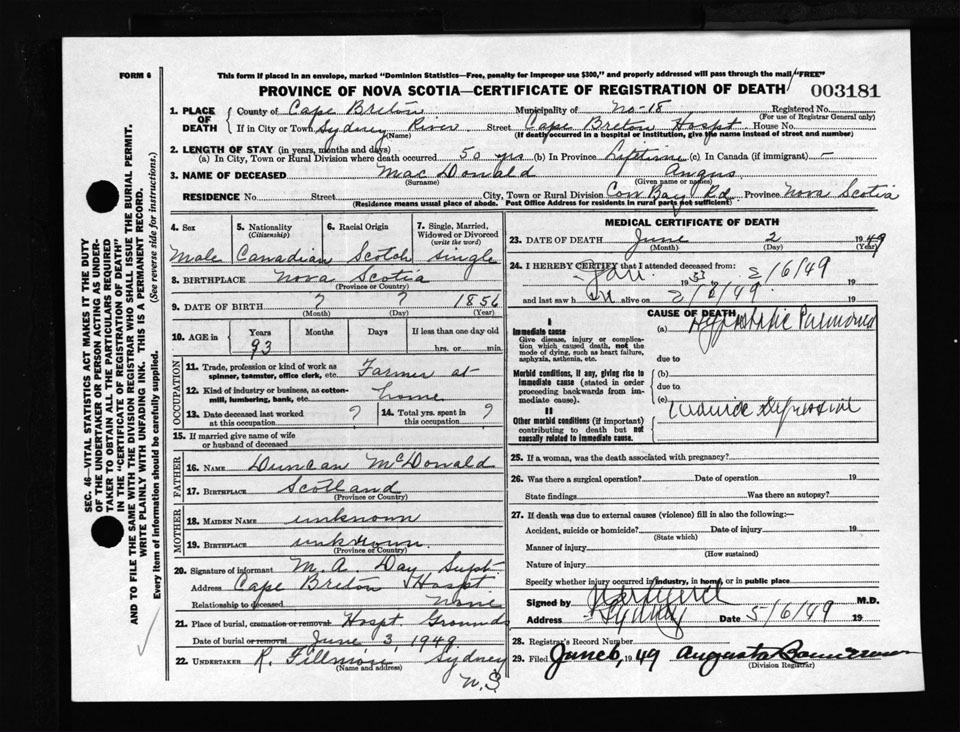 FORM 6
This form if placed in an envelope, marked "Dominion Statistics—Free, penalty for improper use $300," and properly addressed will pass through the mail "FREE"
PROVINCE OF NOVA SCOTIA—CERTIFICATE OF REGISTRATION OF DEATH 003181
1. PLACE OF DEATH County of Cape Breton Municipality of No-18 Registered No.
(For use of Registrar General only)
If in City or Town Sydney River Street Cape Breton Hospt House No.
(Name) (If death occurred in a hospital or institution, give the name instead of street and number)
2. LENGTH OF STAY (in years, months and days)
(a) In City, Town or Rural Division where death occurred 50 yrs (b) In Province Liftime (c) In Canada (if immigrant) -
3. NAME OF DECEASED Mac Donald Angus
(Surname) (Given name or names)
RESIDENCE No. Street City, Town or Rural Division Cow Bay Rd Province Nova Scotia
(Residence means usual place of abode. Post Office Address for residents in rural parts not sufficient)
4. Sex 5. Nationality (Citizenship) 6. Racial Origin 7. Single, Married, Widowed or Divorced (write the word)
Male Canadian Scotch Single
8. BIRTHPLACE Nova Scotia
(Province or Country)
9. DATE OF BIRTH ? ? 1856
(Month) (Day) (Year)
10. AGE in Years Months Days If less than one day old
93 hrs. or min.
OCCUPATION
11. Trade, profession or kind of work as spinner, teamster, office clerk, etc. Farmer at
12. Kind of industry or business, as cotton-mill, lumbering, bank, etc. home
13. Date deceased last worked at this occupation ? 14. Total yrs. spent in this occupation ?
15. If married give name of wife or husband of deceased
FATHER
16. NAME Duncan McDonald
17. BIRTHPLACE Scotland
(Province or Country)
MOTHER
18. MAIDEN NAME unknown
19. BIRTHPLACE unknown.
(Province or Country)
20. Signature of informant M. A. Day Supt.
Address Cape Breton Hospt
Relationship to deceased None
21. Place of burial, cremation or removal Hospt Grounds
Date of burial or removal June 3, 1949
22. UNDERTAKER R. Fillmore Sydney
(Name and address) N.S
MEDICAL CERTIFICATE OF DEATH
23. DATE OF DEATH June 2 1949
(Month) (Day)
24. I HEREBY CERTIFY that I attended deceased from:
Jan 1933 2/6/49 19
and last saw h im alive on 2/6/49. 19
CAUSE OF DEATH
I
Immediate cause
Give disease, injury or complication which caused death, not the mode of dying, such as heart failure, asphyxia, asthenia, etc.
(a) Hypostatic
due to
Morbid conditions, if any, giving rise to immediate cause (stated in order proceeding backwards from immediate cause).
(b)
due to
(c)
II
Other morbid conditions (if important) contributing to death but not causally related to immediate cause.
Depressive
25. If a woman, was the death associated with pregnancy?
26. Was there a surgical operation? Date of operation 19
State findings Was there an autopsy?
27. If death was due to external causes (violence) fill in also the following:—
Accident, suicide or homicide? Date of injury 19
(State which)
Manner of injury
(How sustained)
Nature of injury
Specify whether injury occurred in industry, in home, or in public place
Signed by M.D.
Address Sydney Date 5/6/49 19
28. Registrar's Record Number
29. Filed June 6, 1949 Augusta
(Division Registrar)
SEC. 46—VITAL STATISTICS ACT MAKES IT THE DUTY
OF THE UNDERTAKER OR PERSON ACTING AS UNDER-
TAKER TO OBTAIN ALL THE PARTICULARS REQUIRED
IN THE "CERTIFICATE OF REGISTRATION OF DEATH"
AND TO FILE THE SAME WITH THE DIVISION REGISTRAR WHO SHALL ISSUE THE BURIAL PERMIT.
WRITE PLAINLY WITH UNFADING INK. THIS IS A PERMANENT RECORD.
Every item of information should be carefully supplied. (See reverse side for instructions.)